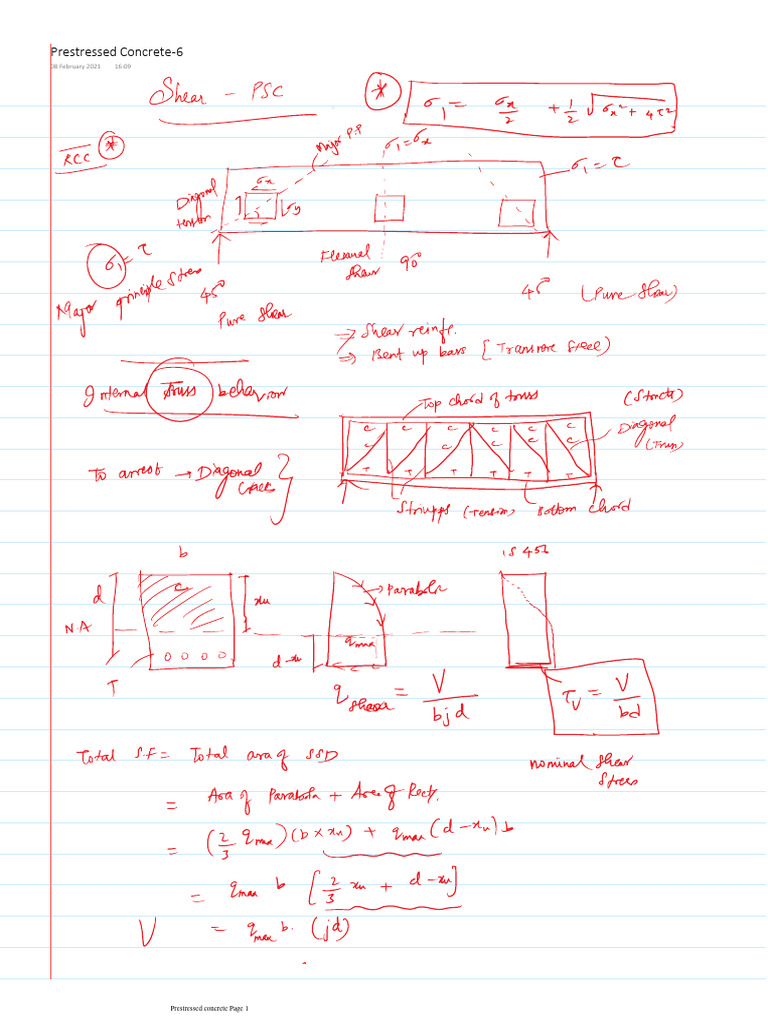 Prestressed Concrete-6
08 February 2021 16:09
Shear - PSC
* σ₁ = σx/2 + 1/2 √(σx² + 4τ²)
RCC *
Major P.P
σ₁ = σx
σ₁ = τ
Diagonal tension
σx
σy
σ₁ = τ
Major principle stress
45°
Pure Shear
Flexural Shear 90°
45° (Pure Shear)
→ Shear reinf.
⇒ Bent up bars [Transverse Steel)
Internal Truss behavior
Top chord of truss
(Struct)
C C C C C C
C C C C
T T T T T T
Diagonal (Truss)
To arrest → Diagonal cracks }
Stirupps (Tension)
Bottom chord
b
IS 456
d
C
xu
→ Parabola
N.A
qmax
d-xu
T
q shear = V/bjd
τv = V/bd
nominal Shear Stress
Total S.F = Total area of SSD
= Area of Parabola + Area of Rect.
= (2/3 qmax)(b × xu) + qmax (d - xu) b
= qmax b [2/3 xu + d - xu]
V = qmax b. (jd)
Prestressed concrete Page 1